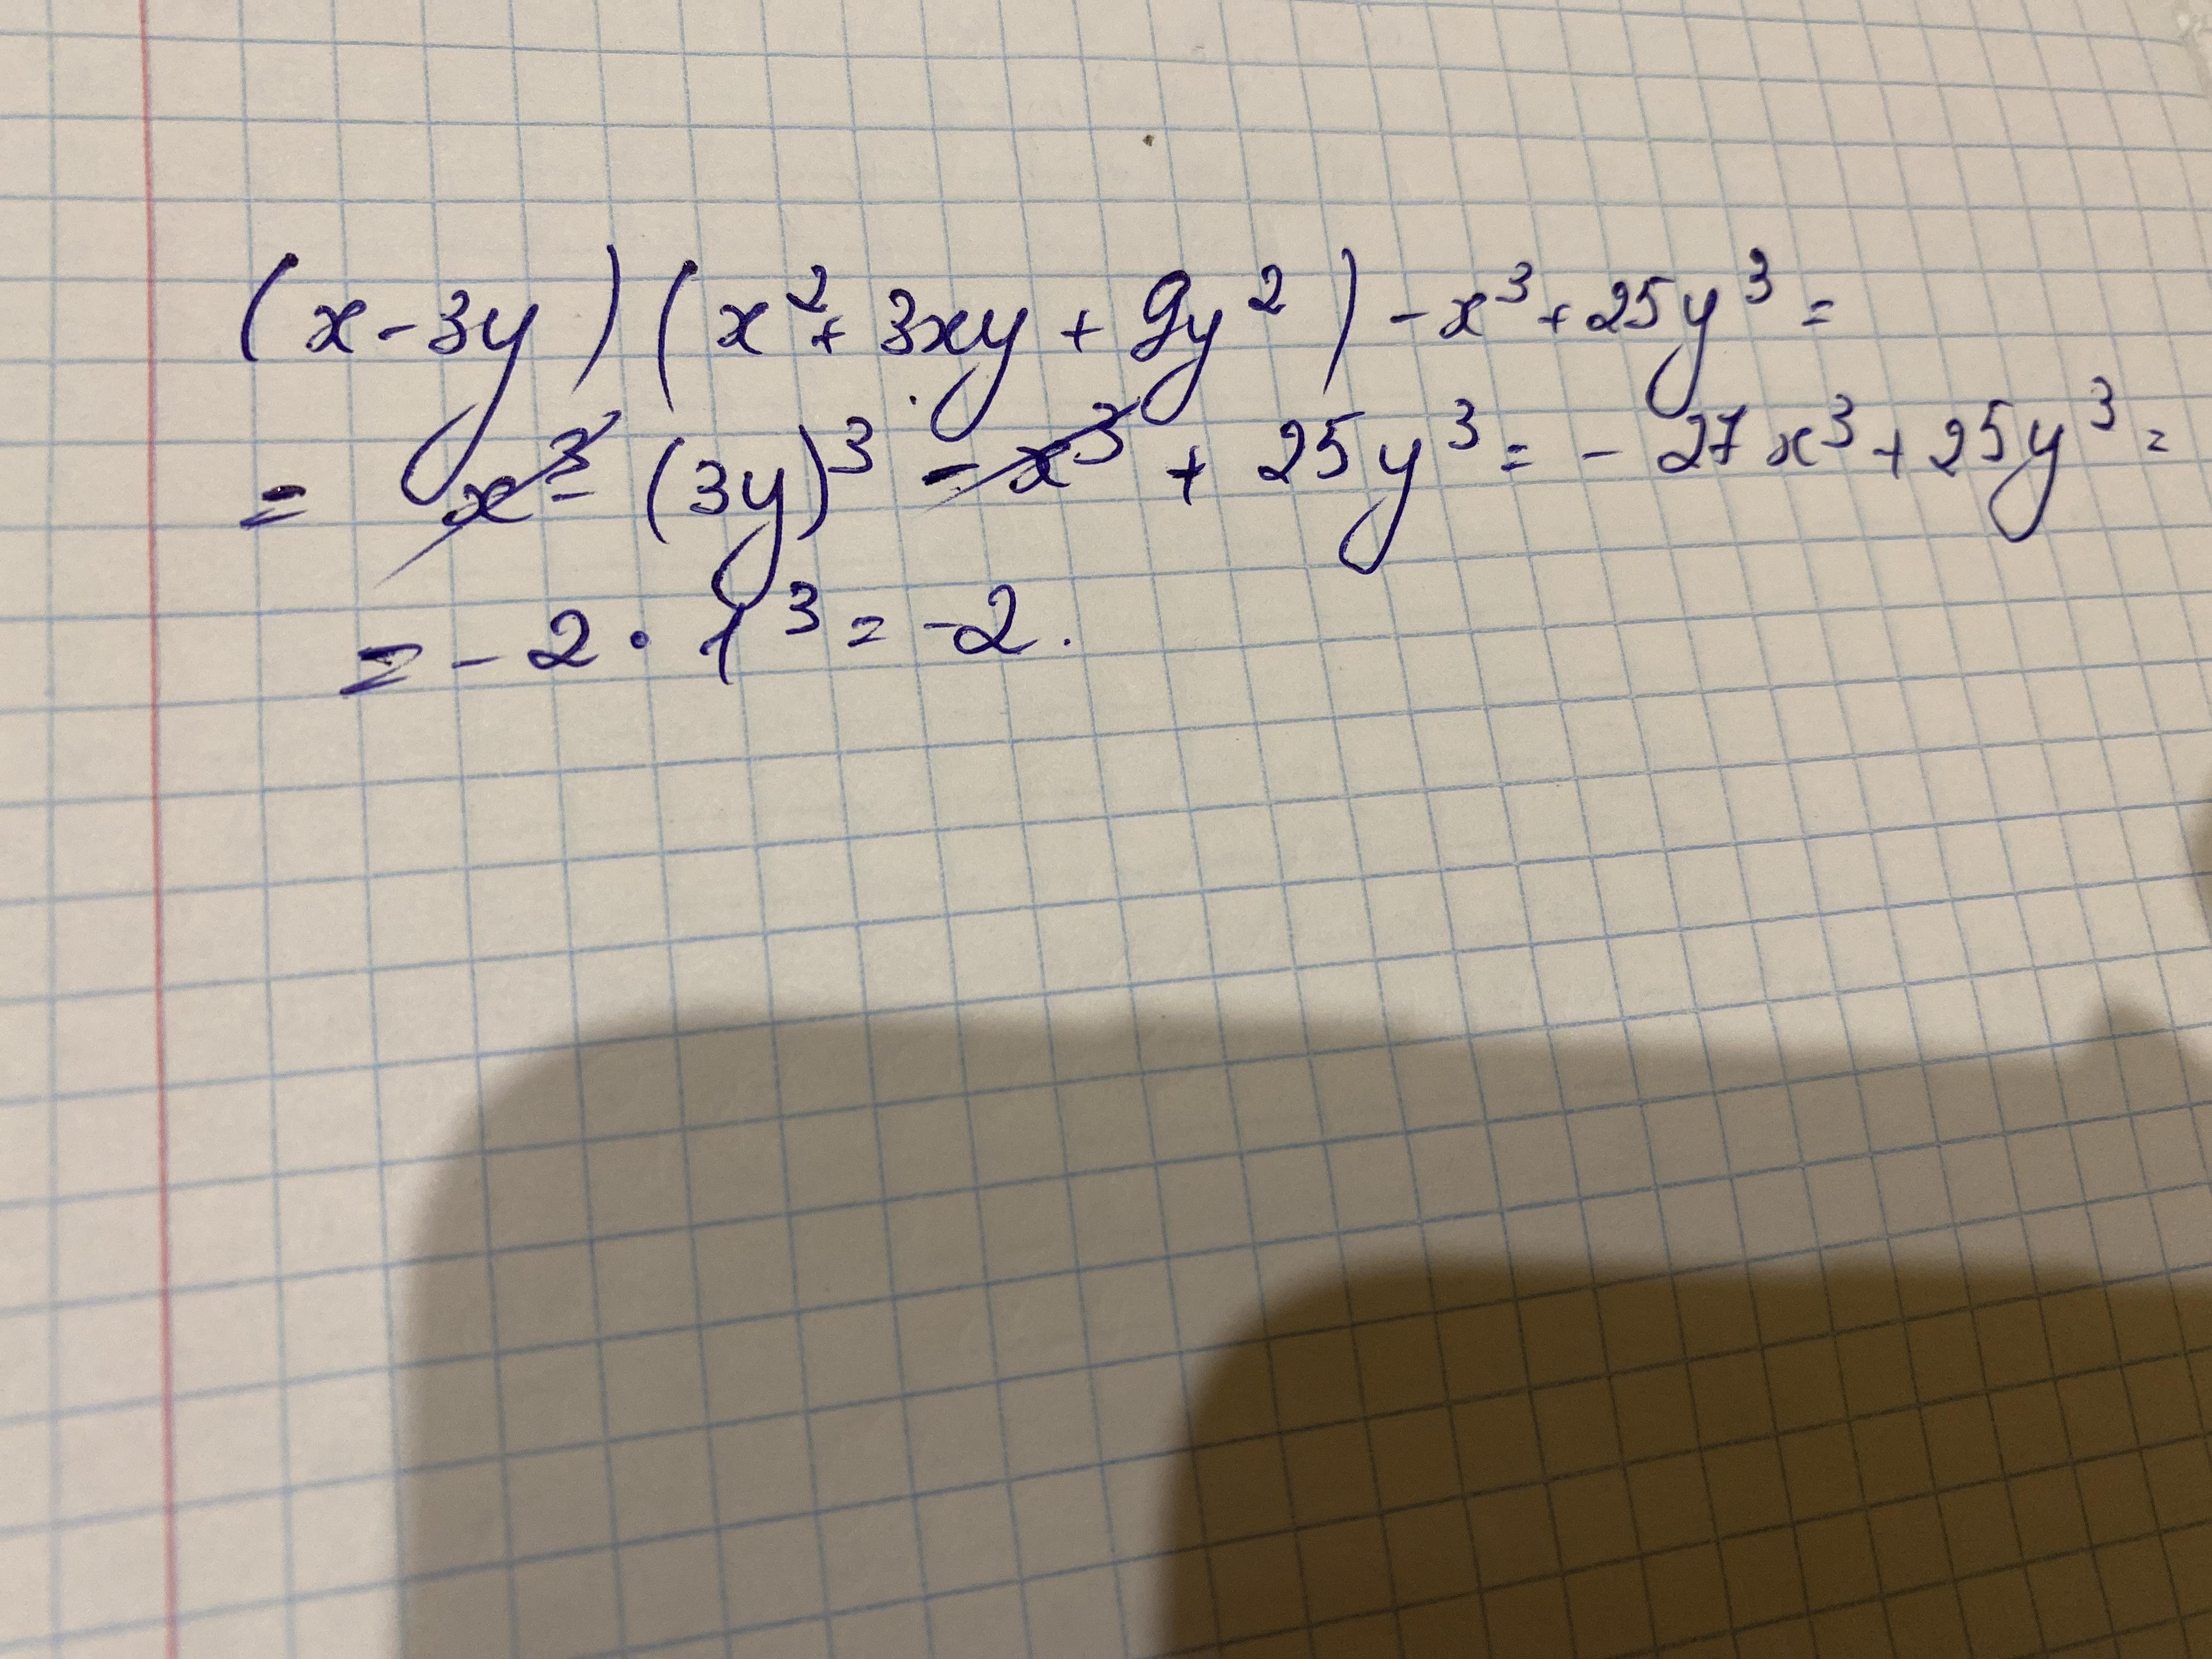 (x-3y)(x²+3xy+9y²)-x³+25y³=
= x³-(3y)³-x³+25y³=-27x³+25y³=
=-2·1³=-2.